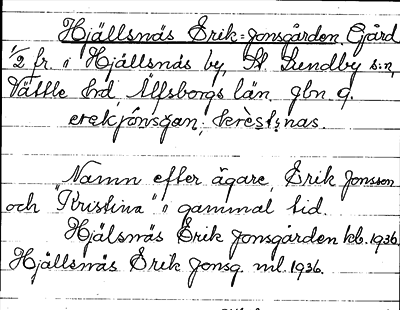 Hjällsnäs Erik-Jonsgården. Gård
1/2 fr. i Hjällsnäs by, St. Lundby s:n,
Vättle hd, Älfsborgs län, gbn 9.
erekjónsgan; krèstinas.
Namn efter ägare, Erik Jonsson
och "Kristina" i gammal tid.
Hjälsnäs Erik Jonsgården kb. 1936.
Hjällsnäs Erik Jonsg. ml. 1936.